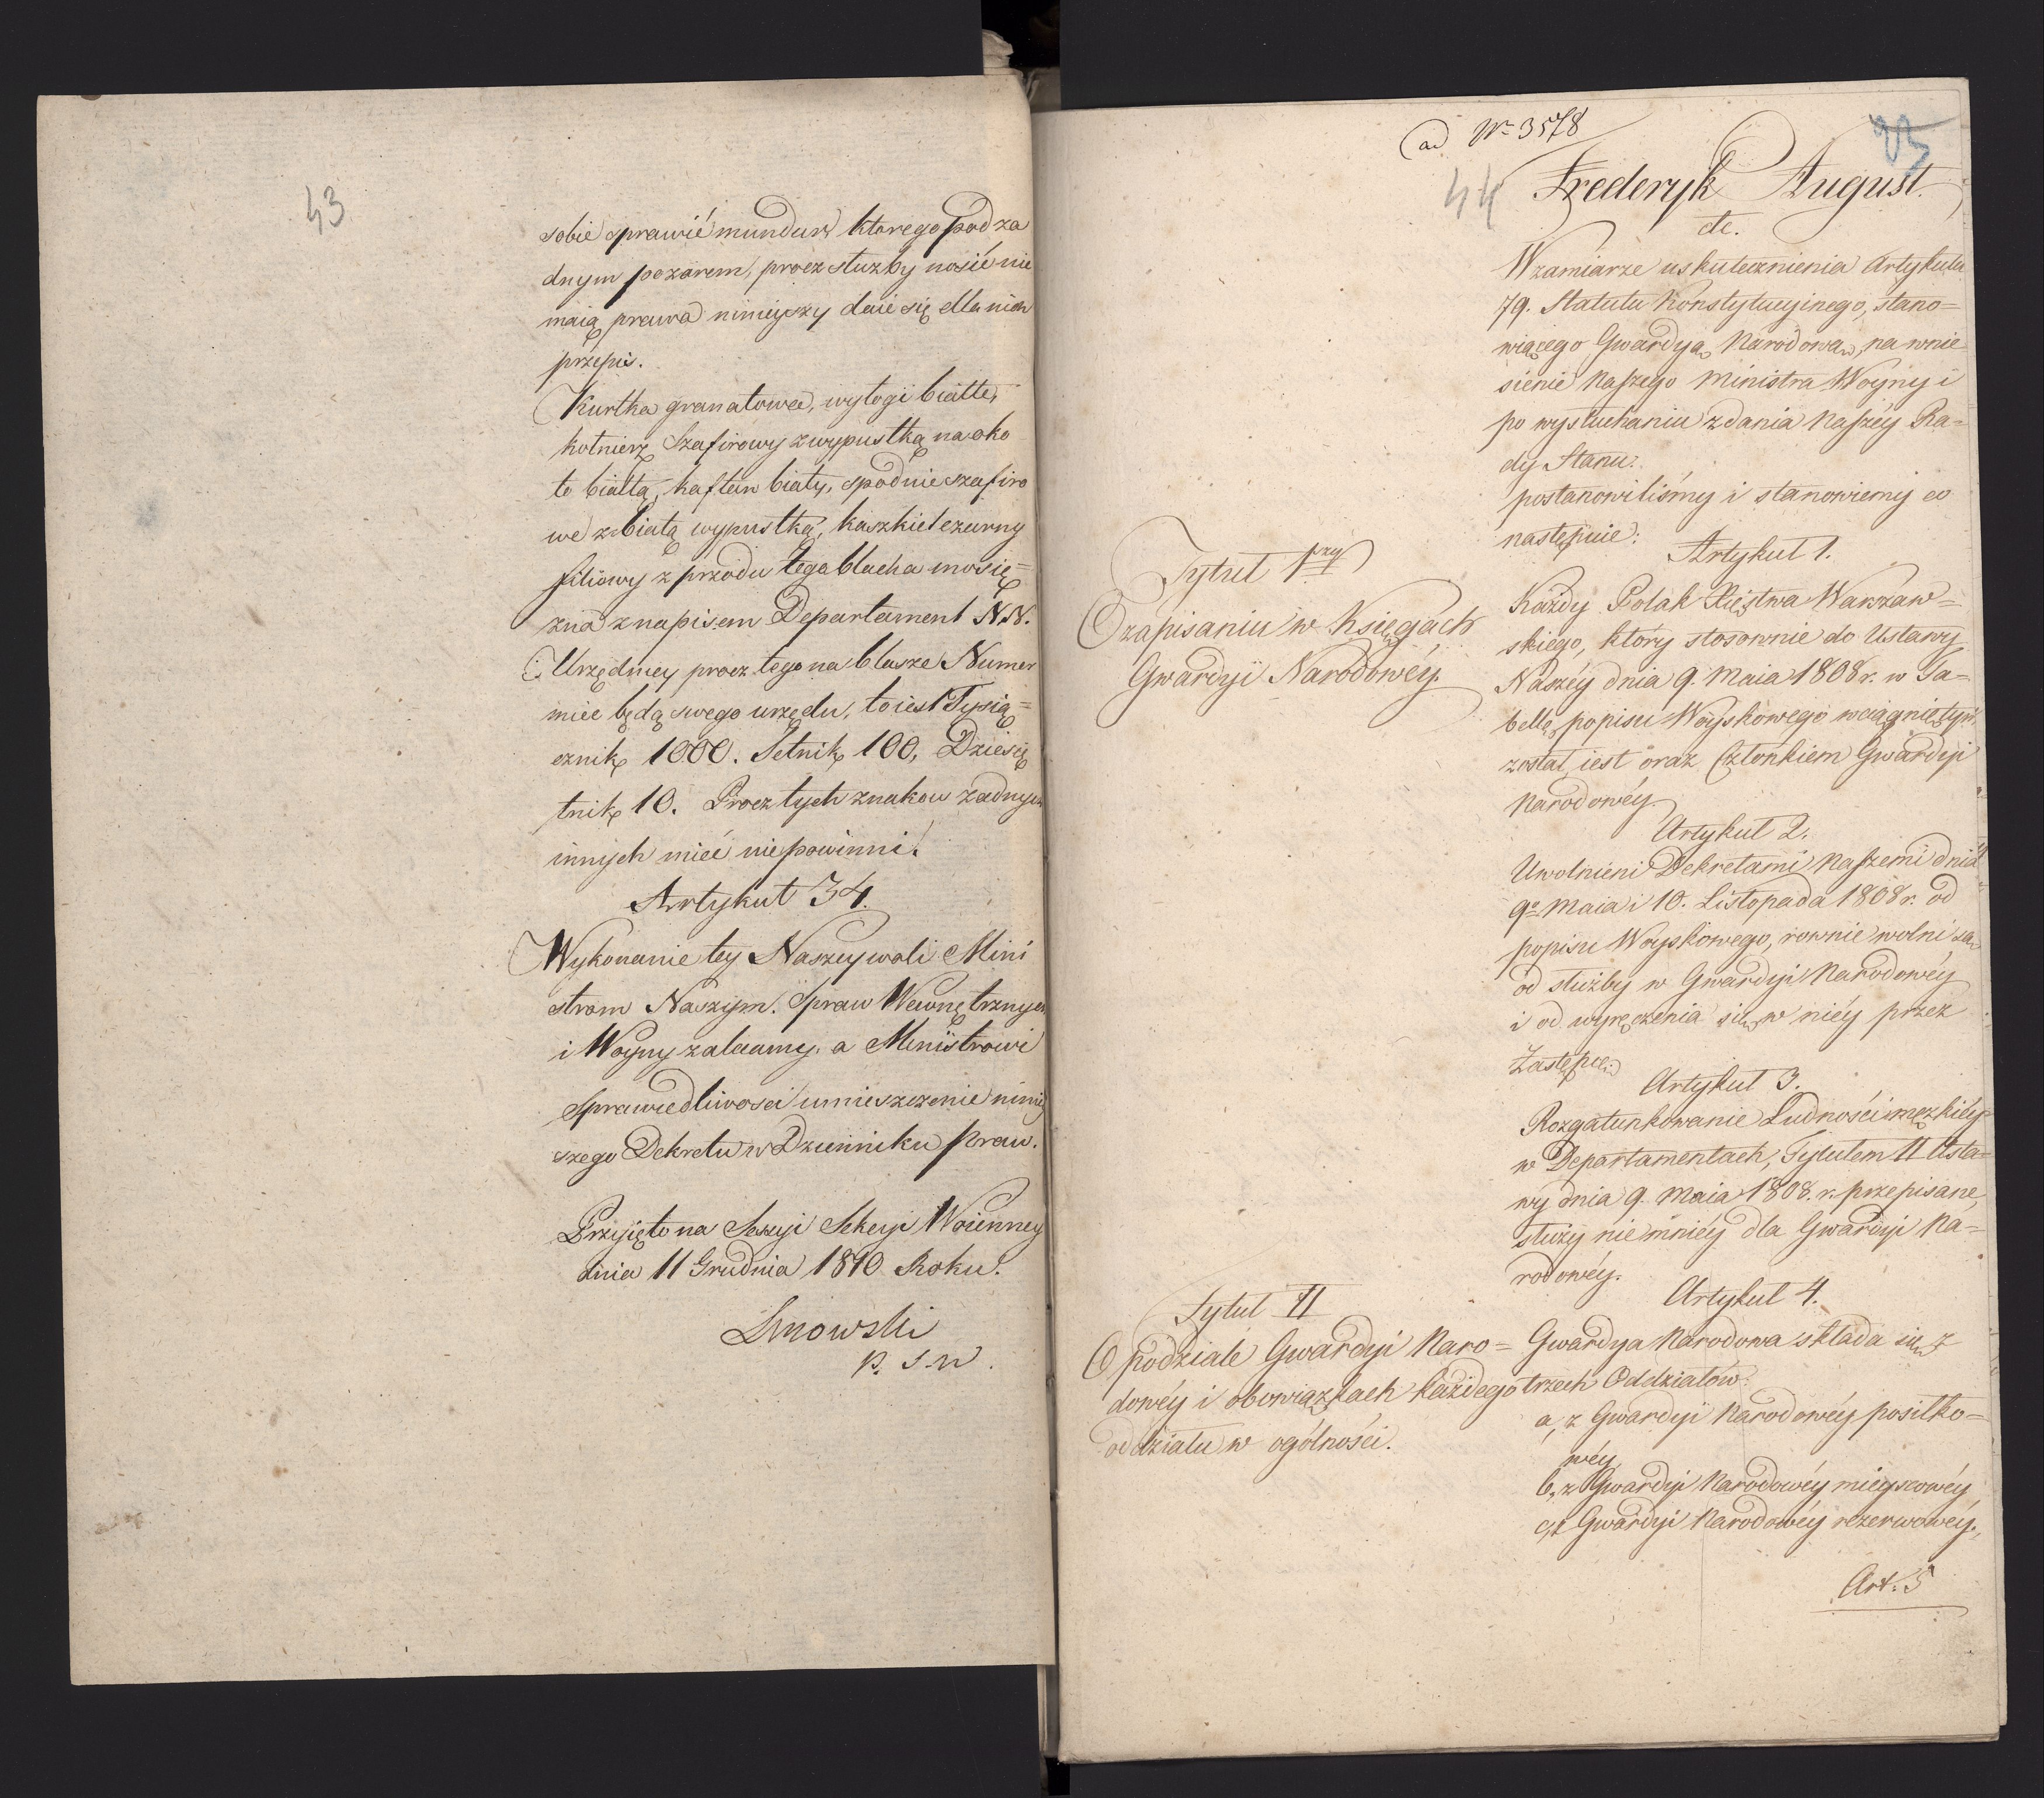 43
sobie sprawić mundur ktorego pod ża
dnym pozorem, procz służby nosić nie
maią prawa ninieyszy daie się dla nich
przepis.
Kurtka granatowa, wyłogi białłe,
kołnierz szafirowy z wypustką na oko
ło białłą, kaftan biały, spodnie szafiro
we z białą wypustką, kaszkiet czarny
filcowy z przodu tega blacha mosię=
żna z napisem Departament N.N.
Urzędnicy procz tego na blasze Numer
mieć będą swego urzędu, to iest Tysią=
cznik 1000. Setnik 100, Dziesię
tnik 10. Procz tych znakow żadnych
innych mieć niepowinni.
Artykuł 34.
Wykonanie tey Naszey woli Mini
strom Naszym. Spraw Wewnętrznych
i Woyny zalecamy, a Ministrowi
Sprawiedliwosci umieszczenie niniey
szego Dekretu w Dzienniku praw.
Przyięto na Sessyi Sekcyi Woienney
dnia 11 Grudnia 1810 Roku.
Linowski
p. s. w.
ad Nr 3578
44
Frederyk August
etc.
W zamiarze uskutecznienia Artykułu
79. Statutu Konstytucyinego, stano=
wiącego Gwardyą Narodową, na wnie
sienie Naszego Ministra Woyny i
po wysłuchaniu zdania Naszéy Ra=
dy Stanu.
postanowiliśmy i stanowiemy co
następuie:
Tytuł 1szy
O zapisaniu w Księgach
Gwardyi Narodowéy.
Artykuł 1.
Każdy Polak Xięstwa Warszaw=
skiego, który stosownie do Ustawy
Naszéy dnia 9. Maia 1808 r. w Ta=
bellę popisu Woyskowego wciągniętym
został, iest oraz Członkiem Gwardyi
Narodowéy.
Artykuł 2.
Uwolnieni Dekretami Naszemi dnia
9o Maia i 10. Listopada 1808 r. od
popisu Woyskowego, rownie wolni są
od służby w Gwardyi Narodowéy
i od wyręczenia się w niéy przez
Zastępcę.
Artykuł 3.
Rozgatunkowanie Ludności męzkiéy
w Departamentach, Tytułem II Usta=
wy dnia 9. Maia 1808. r. przepisane,
służy niemniéy dla Gwardyi Na=
rodowéy.
Tytuł II
O podziale Gwardyi Naro=
dowéy i obowiązkach każdego
oddziału w ogólności.
Artykuł 4.
Gwardya Narodowa składa się z
trzech Oddziałów.
a, z Gwardyi Narodowéy posiłko=
wéy
b, z Gwardyi Narodowéy mieyscowéy
c, z Gwardyi Narodowéy rezerwowéy.
Art. 5